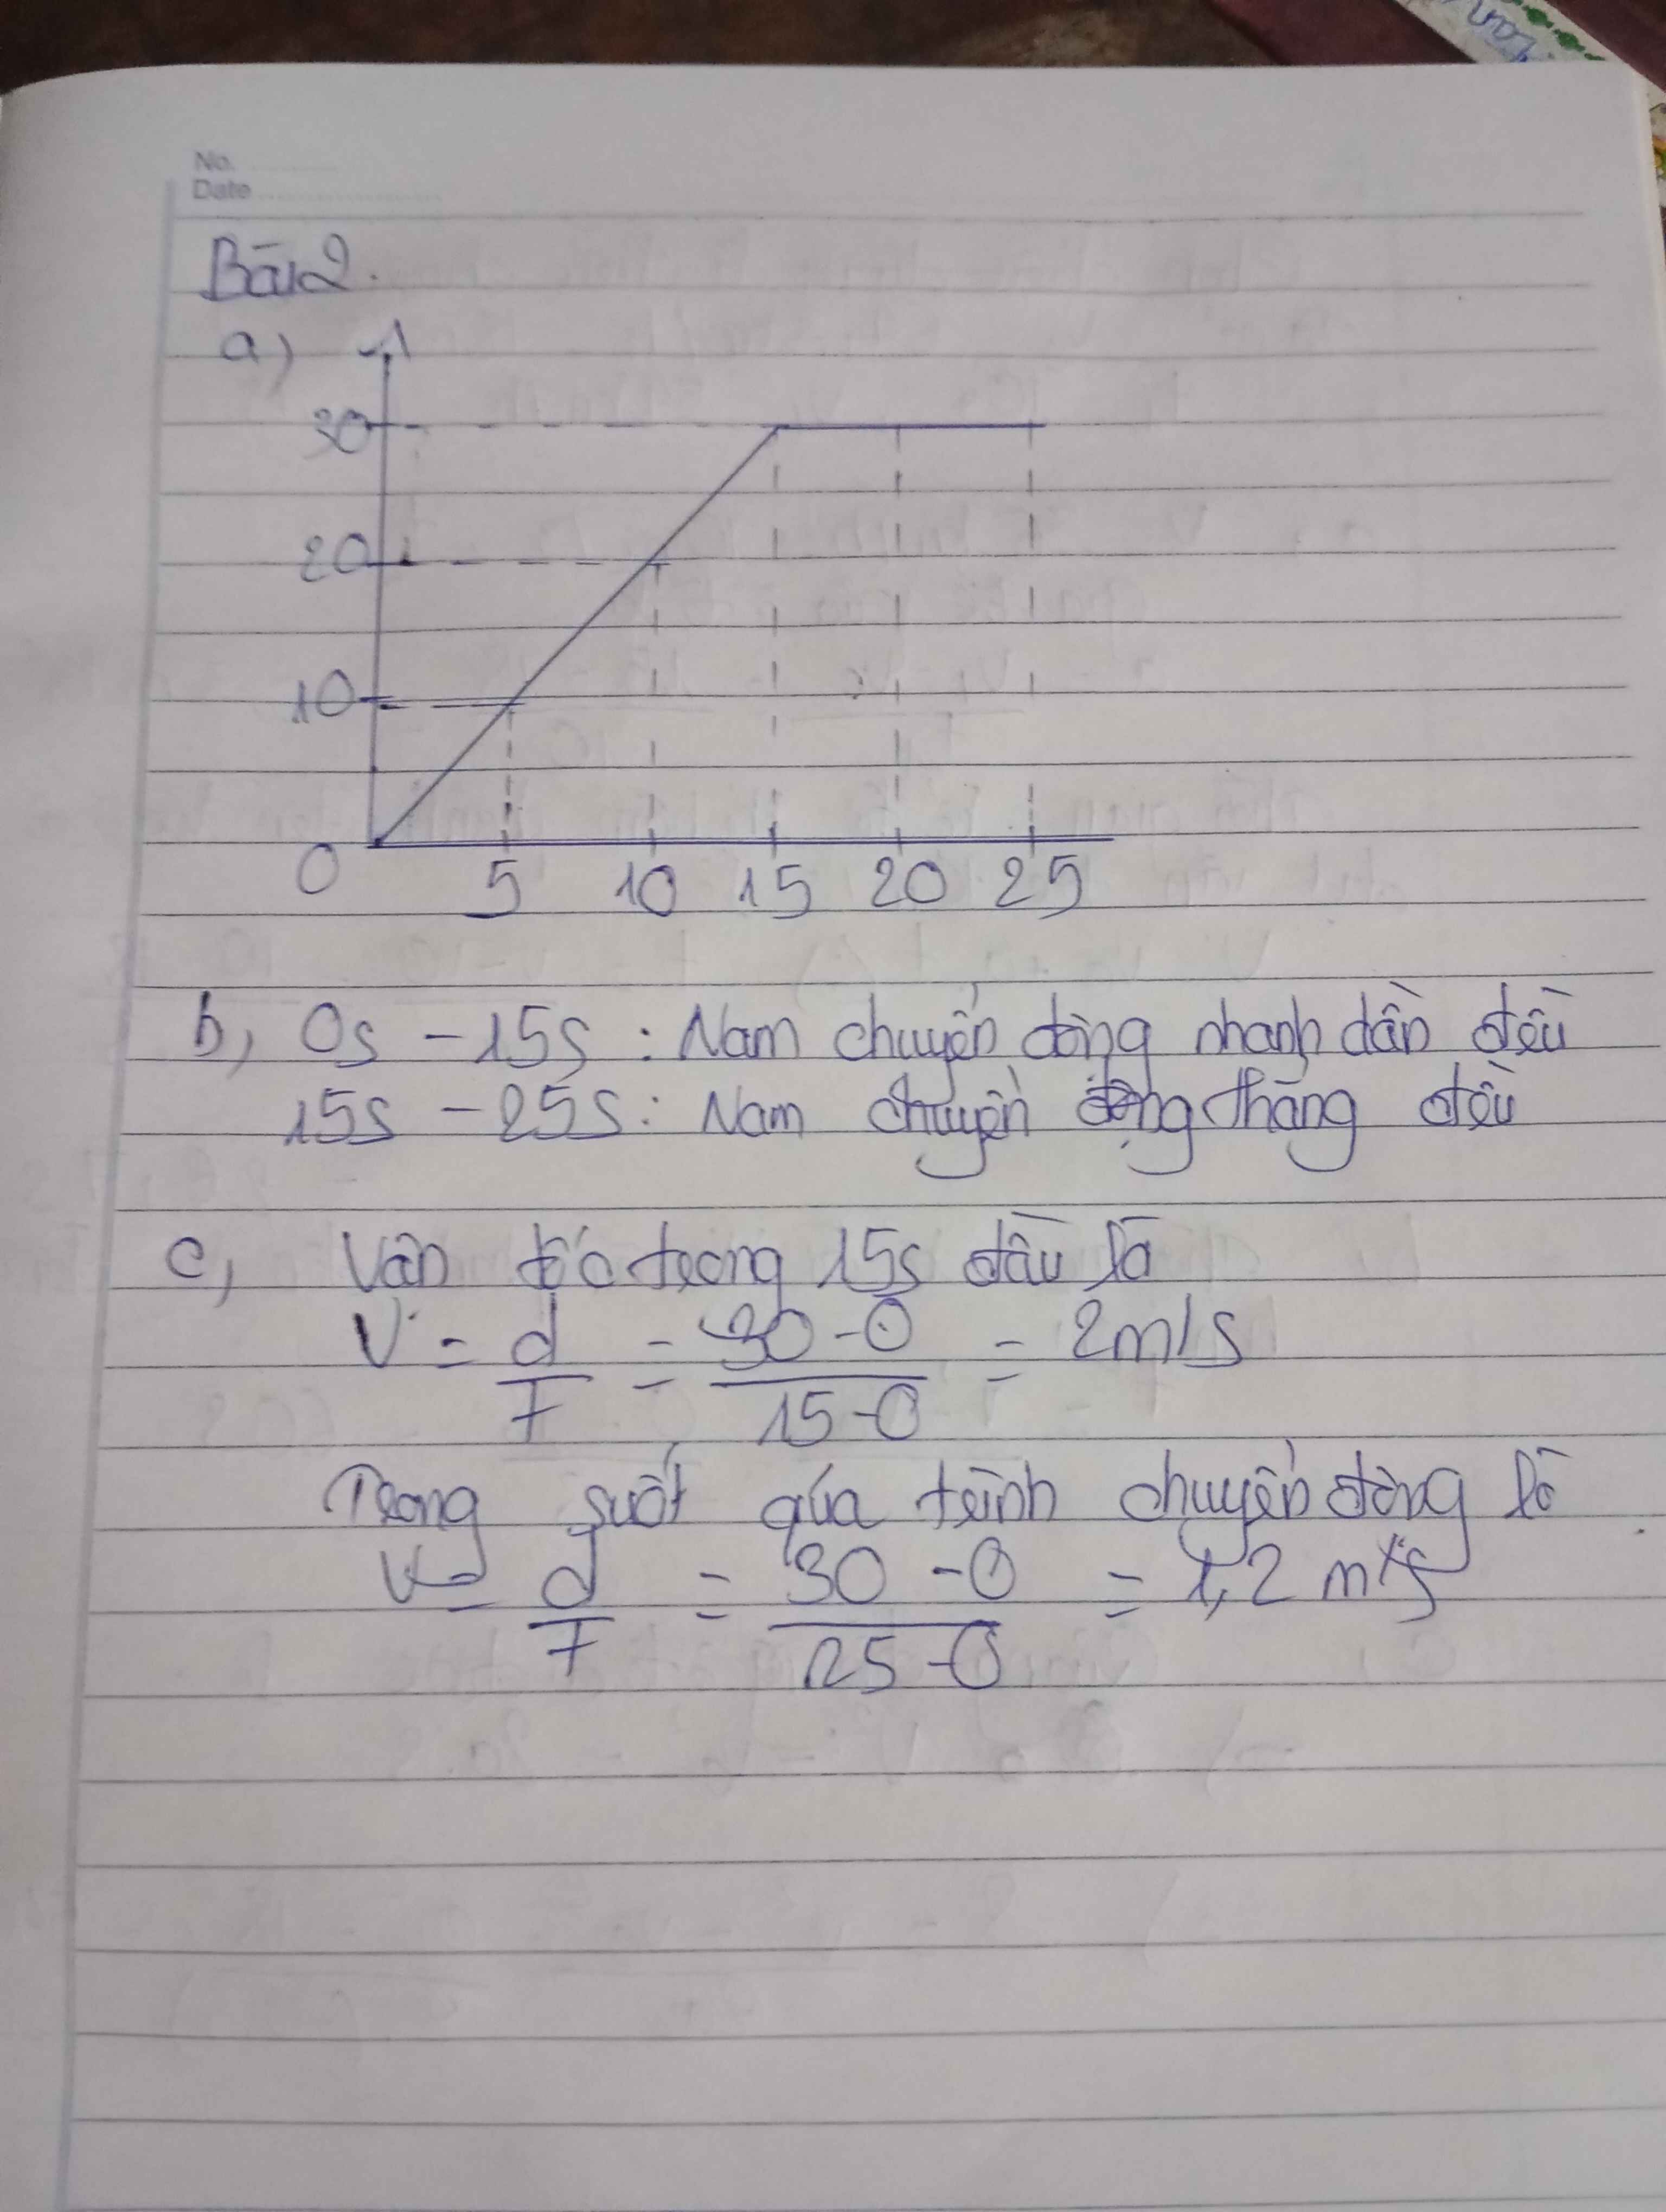 No.
Date
Bài 2.
a)
30
20
10
0 5 10 15 20 25
b, 0s - 15s : Nam chuyển động nhanh dần đều
15s - 25s : Nam chuyển động thẳng đều
c, Vận tốc trong 15s đầu là
V = d/t = 30-0/15-0 = 2m/s
Trong suốt qúa trình chuyển động là
V = d/t = 30-0/25-0 = 1,2 m/s